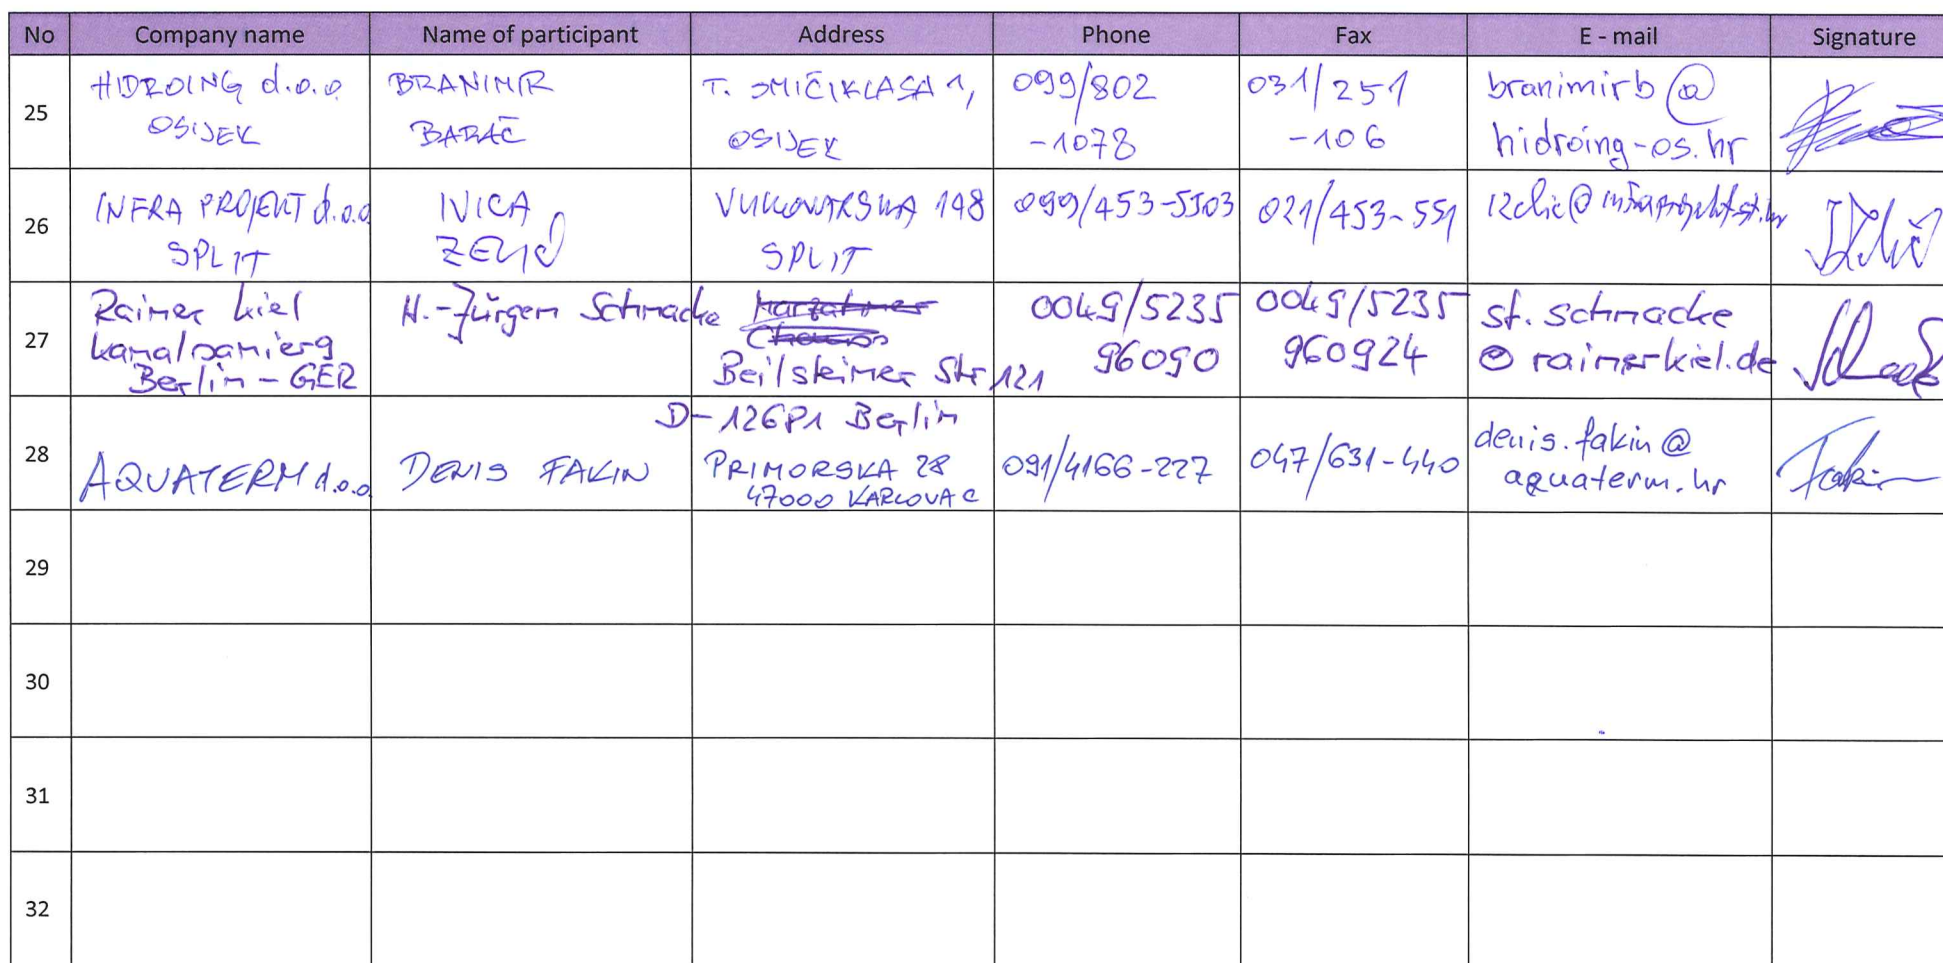 No Company name Name of participant Address Phone Fax E - mail Signature
25
HIDROING d.o.o.
OSIJEK
BRANIMIR
BARAČ
T. SMIČIKLASA 1,
OSIJEK
099/802
-1078
031/251
-106
branimirb@
hidroing-os.hr
26
INFRA PROJEKT d.o.o.
SPLIT
IVICA
ZELIĆ
VUKOVARSKA 148
SPLIT
099/453-5503
021/453-551
27
Rainer Kiel
Kanalsanierg
Berlin - GER
H.-Jürgen Schnacke
Beilsteiner Str 121
D-12681 Berlin
0049/5235
96090
0049/5235
960924
st.schnacke
@ rainerkiel.de
28
AQUATERM d.o.o.
DENIS FAKIN
PRIMORSKA 28
47000 KARLOVAC
091/4166-227
047/631-440
denis.fakin@
aquaterm.hr
Fakin
29
30
31
32